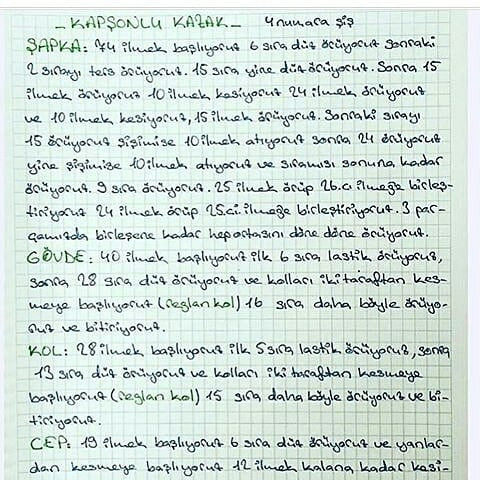 - KAPŞONLU KAZAK - 4 numara şiş
ŞAPKA: 74 ilmek başlıyoruz 6 sıra düz örüyoruz sonraki
2 sırayı ters örüyoruz. 15 sıra yine düz örüyoruz. Sonra 15
ilmek örüyoruz 10 ilmek kesiyoruz 24 ilmek örüyoruz
ve 10 ilmek kesiyoruz, 15 ilmek örüyoruz. Sonraki sırayı
15 örüyoruz şişimise 10 ilmek atıyoruz sonra 24 örüyoruz
yine şişimise 10 ilmek atıyoruz ve sıramısı sonuna kadar
örüyoruz. 9 sıra örüyoruz. 25 ilmek örüp 26.cı ilmeğe birleş-
tiriyoruz 24 ilmek örüp 25.ci ilmeğe birleştiriyoruz. 3 par-
çamızda birleşene kadar hep ortasını döne döne örüyoruz.
GÖVDE: 40 ilmek başlıyoruz ilk 6 sıra lastik örüyoruz,
sonra 28 sıra düz örüyoruz ve kolları iki taraftan kes-
meye başlıyoruz (reglan kol) 16 sıra daha böyle örüyo-
ruz ve bitiriyoruz.
KOL: 28 ilmek başlıyoruz ilk 5 sıra lastik örüyoruz, sonra
13 sıra düz örüyoruz ve kolları iki taraftan kesmeye
başlıyoruz (reglan kol) 15 sıra daha böyle örüyoruz ve bi-
tiriyoruz.
CEP: 19 ilmek başlıyoruz 6 sıra düz örüyoruz ve yanlar-
dan kesmeye başlıyoruz 12 ilmek kalana kadar kesi-